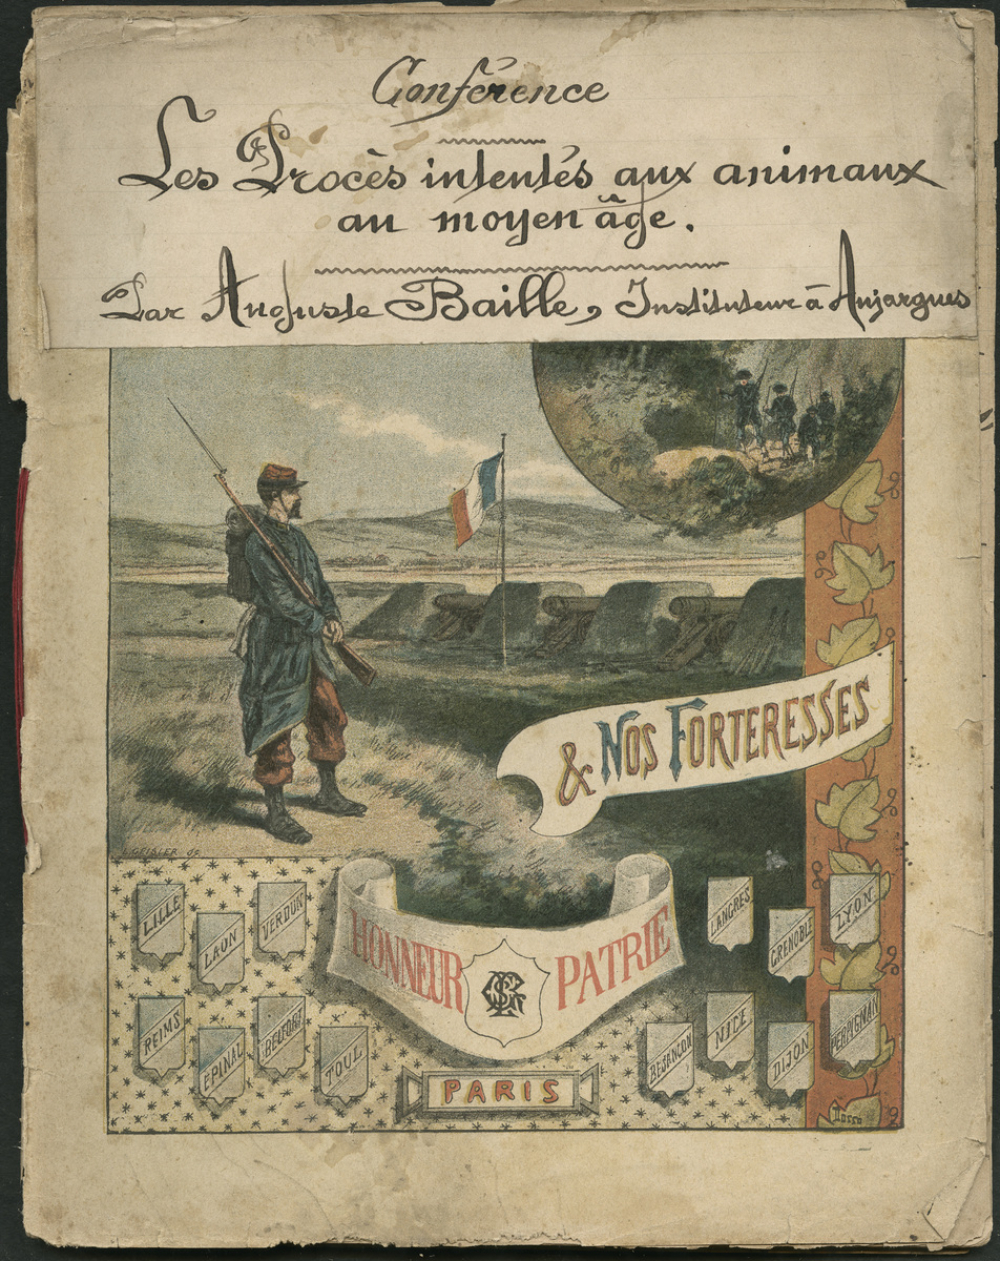 Conférence
Les Procès intentés aux animaux
au moyen âge.
Par Auguste Baille, Instituteur à Aujargues
& NOS FORTERESSES
L. GEISLER
LILLE
LAON
VERDUN
REIMS
EPINAL
BELFORT
TOUL
HONNEUR PATRIE
PARIS
LANGRES
GRENOBLE
LYON
BESANCON
NICE
DIJON
PERPIGNAN